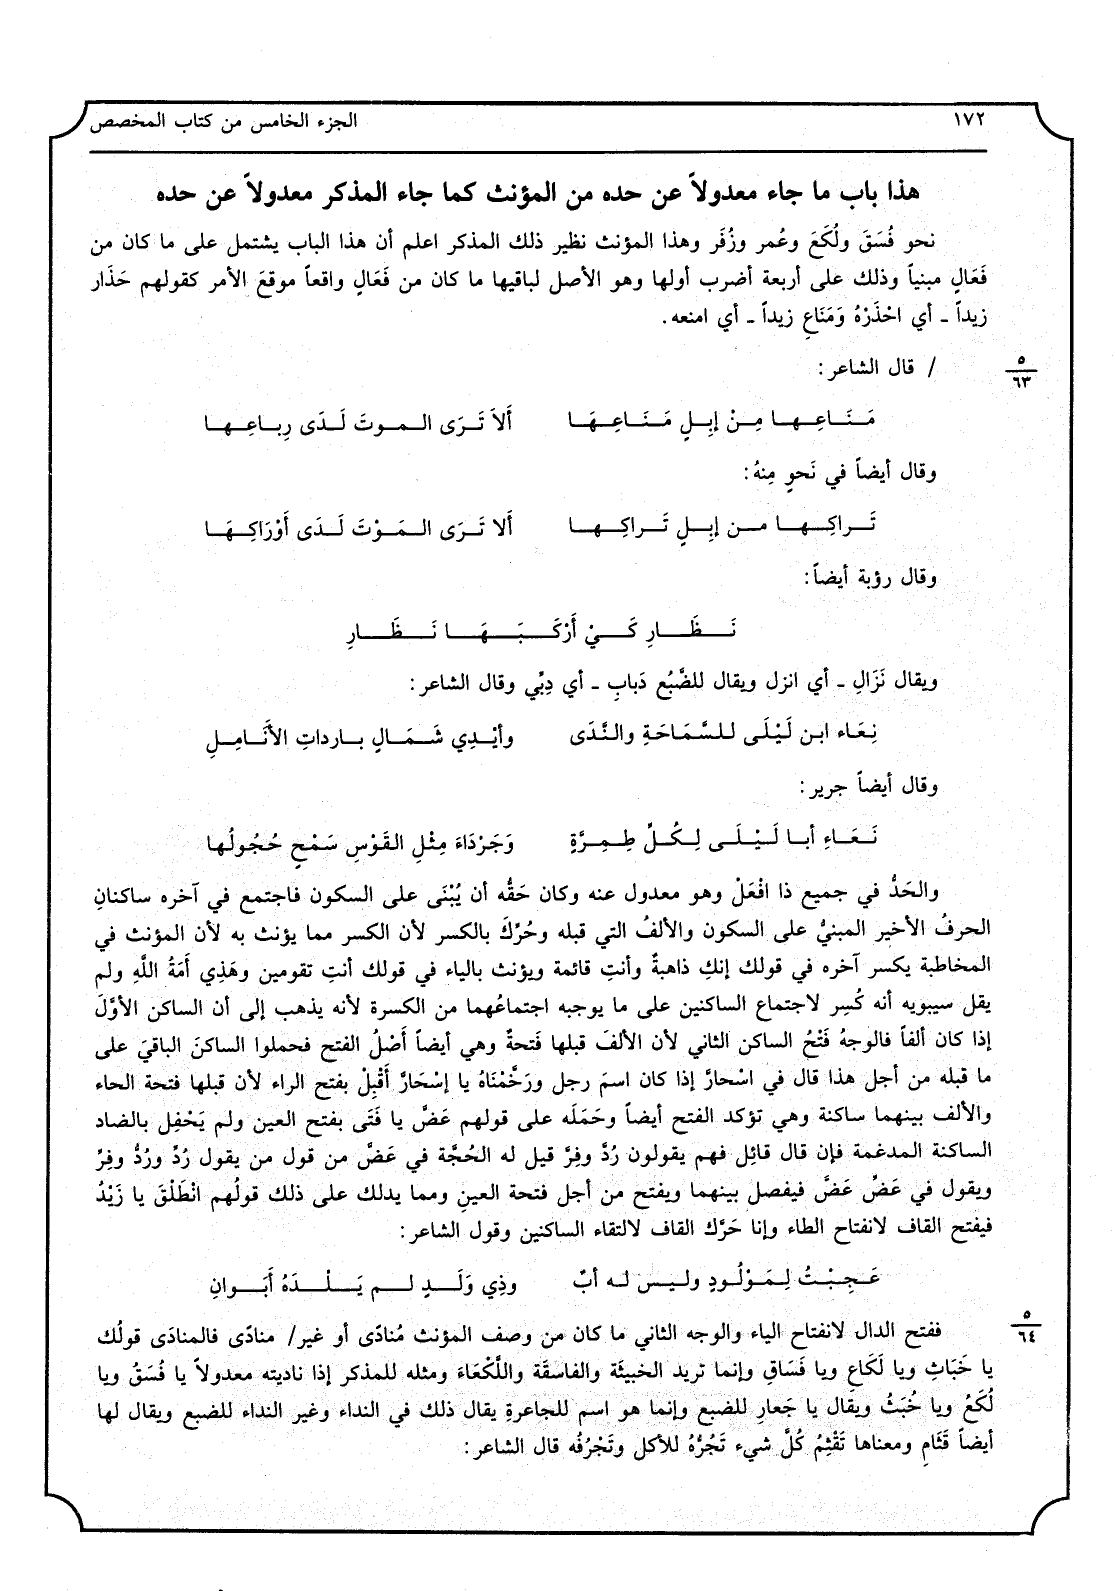 ١٧٢ الجزء الخامس من كتاب المخصص
هذا باب ما جاء معدولاً عن حده من المؤنث كما جاء المذكر معدولاً عن حده
نحو فُسَقَ ولُكَعَ وعُمر وزُفَر وهذا المؤنث نظير ذلك المذكر اعلم أن هذا الباب يشتمل على ما كان من
فَعَالِ مبنياً وذلك على أربعة أضرب أولها وهو الأصل لباقيها ما كان من فَعَالِ واقعاً موقعَ الأمر كقولهم حَذَار
زيداً ـ أي احْذَرْهُ وَمَنَاعِ زيداً ـ أي امنعه.
٥
٦٣
/ قال الشاعر:
مَنَـاعِـهـا مِـنْ إبِـلٍ مَـنَـاعِـهَـا أَلاَ تَـرَى الـمـوتَ لَـدَى رِبـاعِـهـا
وقال أيضاً في نَحوٍ مِنهُ:
تَـراكِـهـا مـن إبِـلٍ تَـراكِـهـا أَلا تَـرَى الـمَـوْتَ لَـدَى أَوْرَاكِـهَـا
وقال رؤبة أيضاً:
نَـظَـارِ كَـيْ أَرْكَـبَـهَـا نَـظَـارِ
ويقال نَزَالِ ـ أي انزل ويقال للضَّبُع دَبابِ ـ أي دِبِّي وقال الشاعر:
نِعَاء ابن لَيْلَى للسَّمَاحَةِ والنَّدَى وأيْـدِي شَـمَـالٍ بـاردَاتِ الأَنَـامِـلِ
وقال أيضاً جرير:
نَـعَـاءِ أبـا لَـيْـلَـى لِـكُـلِّ طِـمِـرَّةٍ وَجَرْدَاءَ مِثْلِ القَوْسِ سَمْحٍ حُجُولُها
والحَدُّ في جميع ذا افْعَلْ وهو معدول عنه وكان حَقُّه أن يُبْنَى على السكون فاجتمع في آخره ساكنانِ
الحرفُ الأخير المبنيُّ على السكون والألفُ التي قبله وحُرِّكَ بالكسر لأن الكسر مما يؤنث به لأن المؤنث في
المخاطبة يكسر آخره في قولك إنكِ ذاهبةٌ وأنتِ قائمة ويؤنث بالياء في قولك أنتِ تقومين وهَذِي أَمَةُ اللَّهِ ولم
يقل سيبويه أنه كُسِر لاجتماع الساكنين على ما يوجبه اجتماعُهما من الكسرة لأنه يذهب إلى أن الساكن الأوَّلَ
إذا كان ألفاً فالوجهُ فَتْحُ الساكن الثاني لأن الألفَ قبلها فَتحةٌ وهي أيضاً أَصْلُ الفتح فحملوا الساكنَ الباقيَ على
ما قبله من أجل هذا قال في اسْحارّ إذا كان اسمَ رجل ورَخَّمْنَاهُ يا إسْحَارَّ أَقْبِلْ بفتح الراء لأن قبلها فتحة الحاء
والألف بينهما ساكنة وهي تؤكد الفتح أيضاً وحَمَلَه على قولهم عَضَّ يا فَتَى بفتح العين ولم يَحْفِل بالضاد
الساكنة المدغمة فإن قال قائِل فهم يقولون رُدَّ وفِرَّ قيل له الحُجَّة في عَضَّ من قول من يقول رُدُّ ورُدُّ وفِرِّ
ويقول في عَضِّ عَضَّ فيفصل بينهما ويفتح من أجل فتحة العينِ ومما يدلك على ذلك قولُهم انْطَلْقَ يا زَيْدُ
فيفتح القاف لانفتاح الطاء وإنا حَرَّك القاف لالتقاء الساكنين وقول الشاعر:
عَـجِـبْـتُ لِـمَـوْلُـودٍ ولـيـس لـه أبٌ وذِي وَلَـدٍ لـم يَـلْـدَهُ أَبَـوانِ
٥
٦٤
ففتح الدال لانفتاح الياء والوجه الثاني ما كان من وصف المؤنث مُنادًى أو غير/ منادًى فالمنادَى قولُك
يا خَبَاثِ ويا لَكَاعِ ويا فَسَاقِ وإنما تريد الخبيثَة والفاسقَة واللَّكْعَاءَ ومثله للمذكر إذا ناديته معدولاً يا فُسَقُ ويا
لُكَعُ ويا خُبَثُ ويقال يا جَعارِ للضبع وإنما هو اسم للجاعرةِ يقال ذلك في النداء وغير النداء للضبع ويقال لها
أيضاً قَثَامِ ومعناها تَقْثِمُ كُلَّ شيء تَجُرُّهُ للأكل وتَجْرُفُه قال الشاعر: